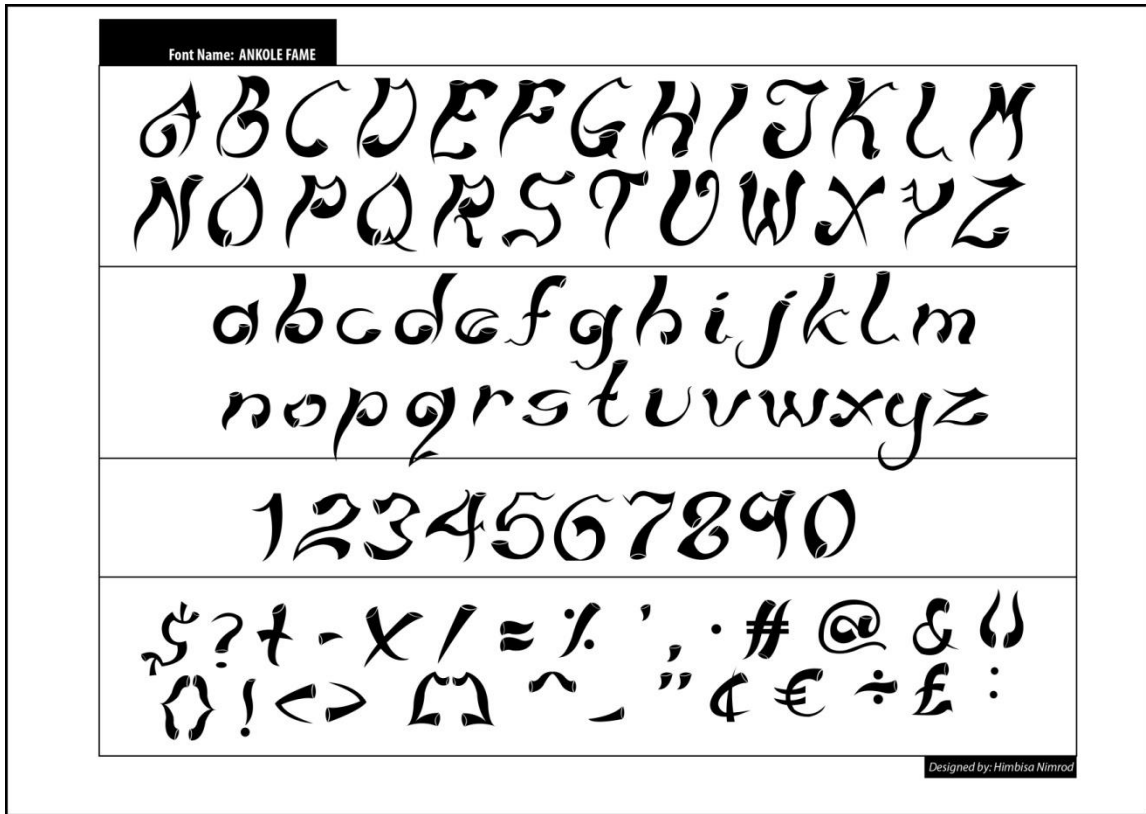 Font Name: ANKOLE FAME
ABCDEFGHIJKLM
NOPQRSTUWXYZ
abcdefghijklm
nopqrstuvwxyz
1234567890
$?+-X/=%',·#@&()
{}!<>[]^_"¢€÷£:
Designed by: Himbisa Nimrod